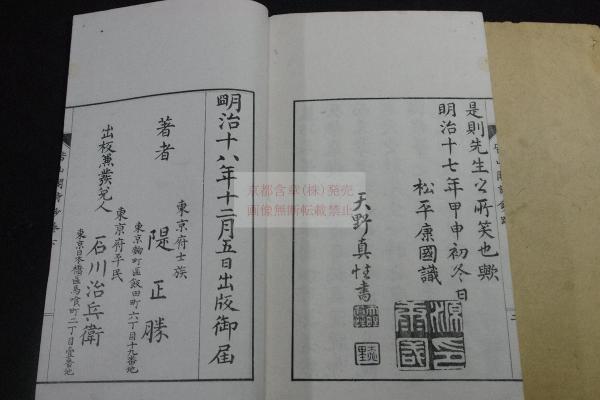 是則先生之所笑也歟
明治十七年甲申初冬日
松平康國識
天野真性書
源印康國
明治十八年十二月五日出版御届
東京府士族
著者 隄正勝
東京麹町區飯田町六丁目十九番地
東京府平民
出板兼發兌人 石川治兵衛
東京日本橋區馬喰町二丁目壹番地
京都含章(株)発売
画像無断転載禁止